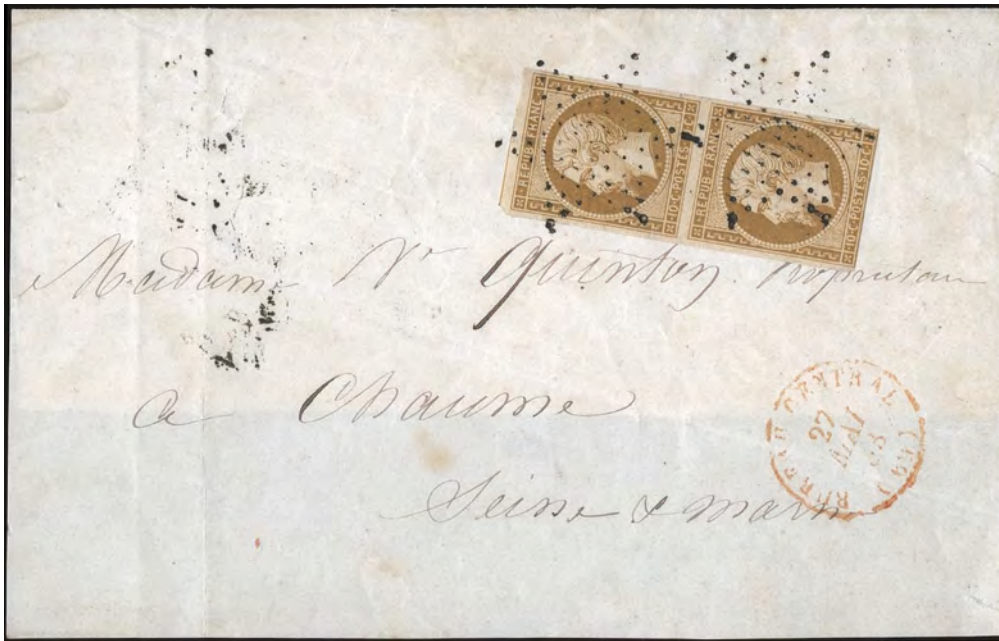 REPUB·FRANC
10·C·POSTES·10·C
REPUB·FRANC
10·C·POSTES·10·C
Madame Ve Quinton. Propriétaire
a Chaume
Seine & marne
BUREAU CENTRAL (60)
27
MAI
53